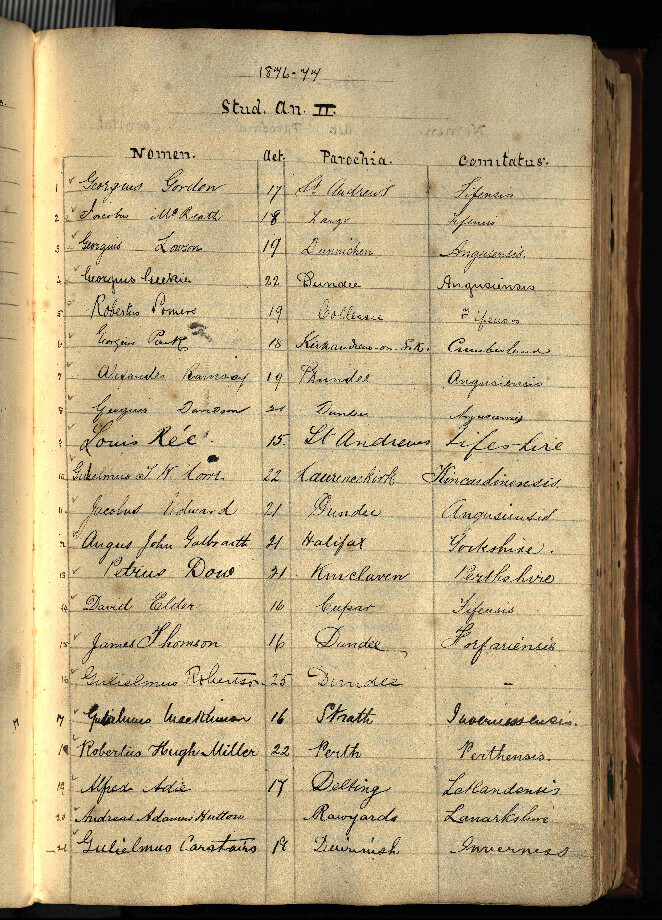 1876-77
Stud. An. II.
Nomen. Aet. Parochia. Comitatus.
1 Georgius Gordon 17 St Andrews Fifensis
2 Jacobus McReath 18 Largo Fifensis
3 Georgius Lawson 19 Dunnichen Angusensis.
4 Georgius Geekie 22 Dundee Angusiensis
5 Robertus Pomers 19 Collessie Fifensis
6 Georgius Park 18 Kirkandrews-on-Esk. Cumberland
7 Alexander Ramsay 19 Dundee Angusiensis
8 Georgius Davidson 21 Dundee Angusiensis
9 Louis Rée. 15. St Andrews Fifeshire
10 Gulielmus T. W. 22 Laurencekirk Kincardinensis
11 Jacobus Edward 21 Dundee Angusiensis
12 Angus John Galbraith 21 Halifax Yorkshire.
13 Petrus Dow 21 Kinclaven Perthshire
14 David Elder 16 Cupar Fifensis
15 James Thomson 16 Dundee Forfariensis
16 Gulielmus Robertson 25 Dundee –
17 Gulielmus Mackinnon 16 Strath Invernessensis.
18 Robertus Hugh Miller 22 Perth Perthensis.
19 Alfred Adie 17 Delting Zetlandensis
20 Andreas Adamus Hutton Rawyards Lanarkshire
21 Gulielmus Carstairs 18 Duirinish Inverness